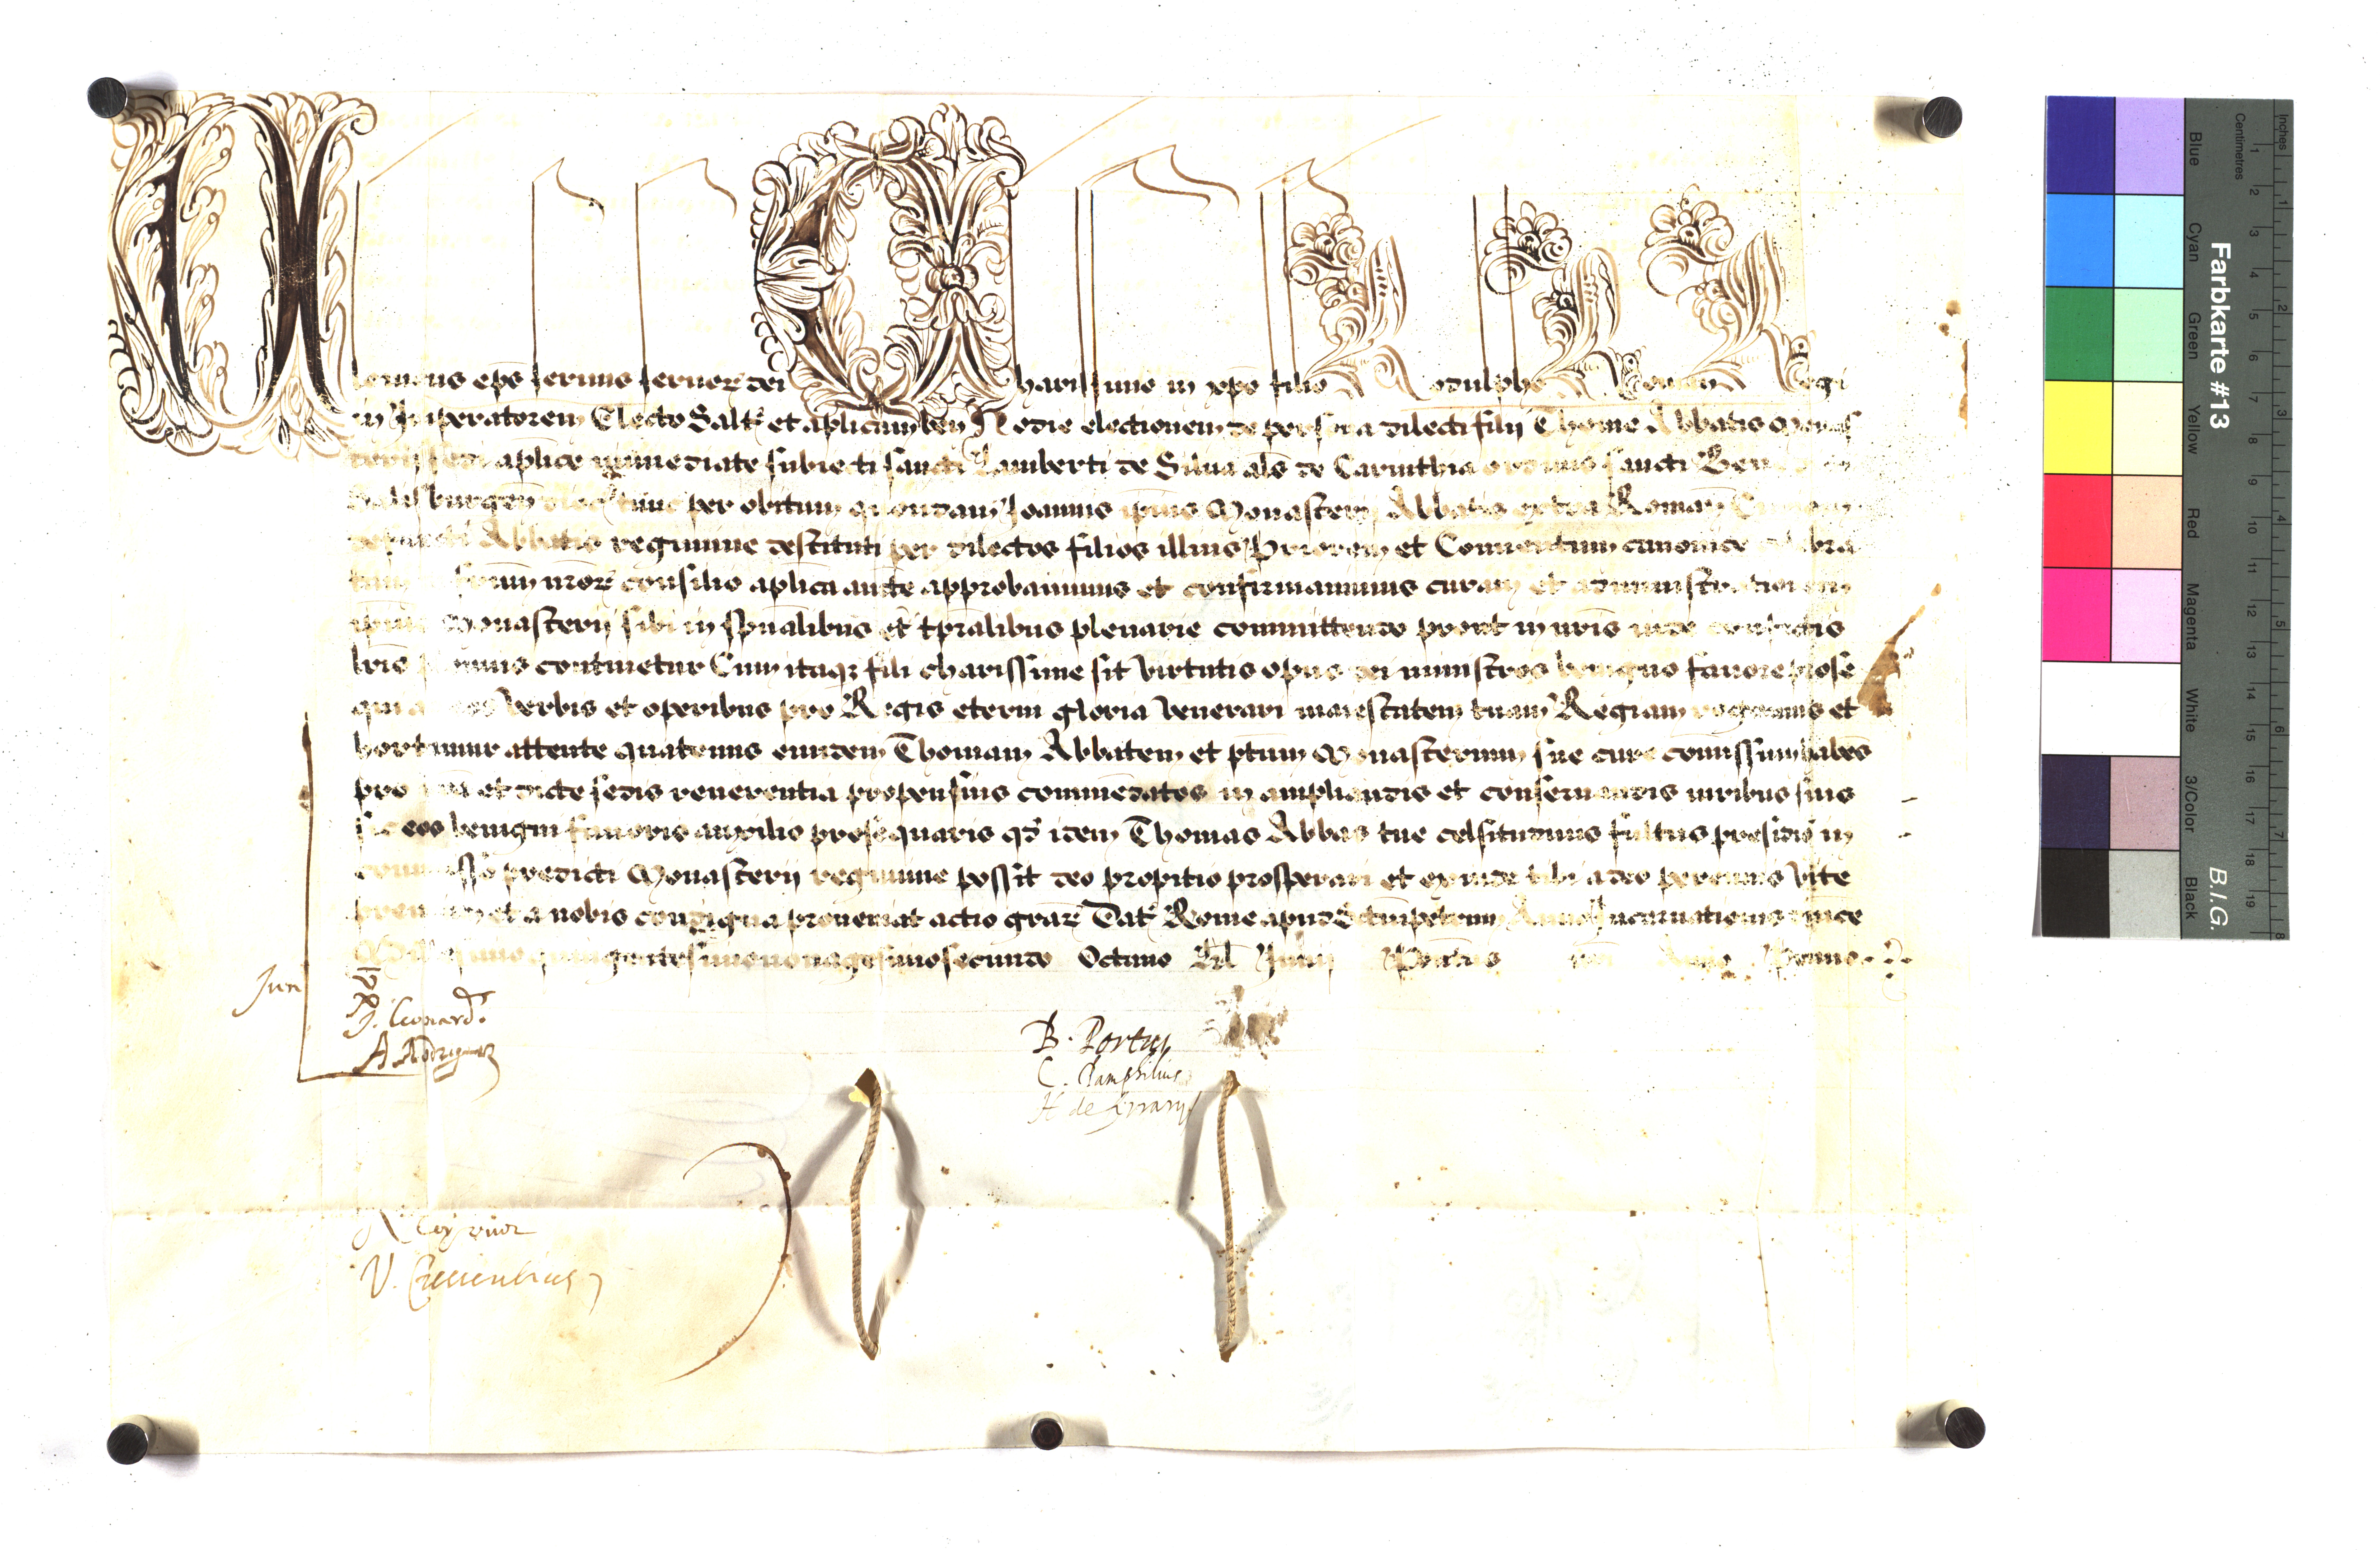 Clemens eps seruus seruoꝝ dei Charissimo in xpo filio Rodulpho Roman Regi
in Imperatorem Electo Saltē et aplicam ben Hodie electionem de persona dilecti filij Thome Abbatis Monas
terij sedi aplice immediate subiecti sancti Lamberti de Silua als de Carinthia ordinis sancti Ben
Salisburgen dioc tunc per obitum quondam Joannis ipius Monasterij Abbatis extra Roman
defuncti Abbatis regimine destituti per dilectos filios illius Priorem et Conuentum canonice celebra
frum nroꝝ consilio aplica aucte approbauimus et confirmauimus curam et administrationem
ipius Monasterij sibi in spualibus et tpralibus plenarie committendo prout in nris inde confectis
lris plenius continetur Cum itaqꝫ fili charissime sit virtutis opus dei ministros benigno fauore prose
qui ac eos verbis et operibus pro Regis eterni gloria venerari maiestatem tuam Regiam rogamus et
hortamur attente quatenus eundem Thomam Abbatem et ptum Monasterium sue cure comissum habes
pro nra et dicte sedis reuerentia propensius commedatos in ampliandis et conseruandis iuribus suis
sic eos benigni fauoris auxilio prosequaris qd idem Thomas Abbas tue celsitudinis fultus presidio in
commisso predicti Monasterij regimine possit deo propitio prosperari et exinde tibi a deo perennis vite
premium et a nobis condigna proueniat actio graꝝ Dat Rome apud Sanctumpetrum Anno Incarnationis dnice
Millesimo quingentesimononagesimosecundo Octauo Kl Junij Pontus nri Anno Primo
Jun
J. Leonard.
A. Rodriguez
B. Portus
C. Pamphilius